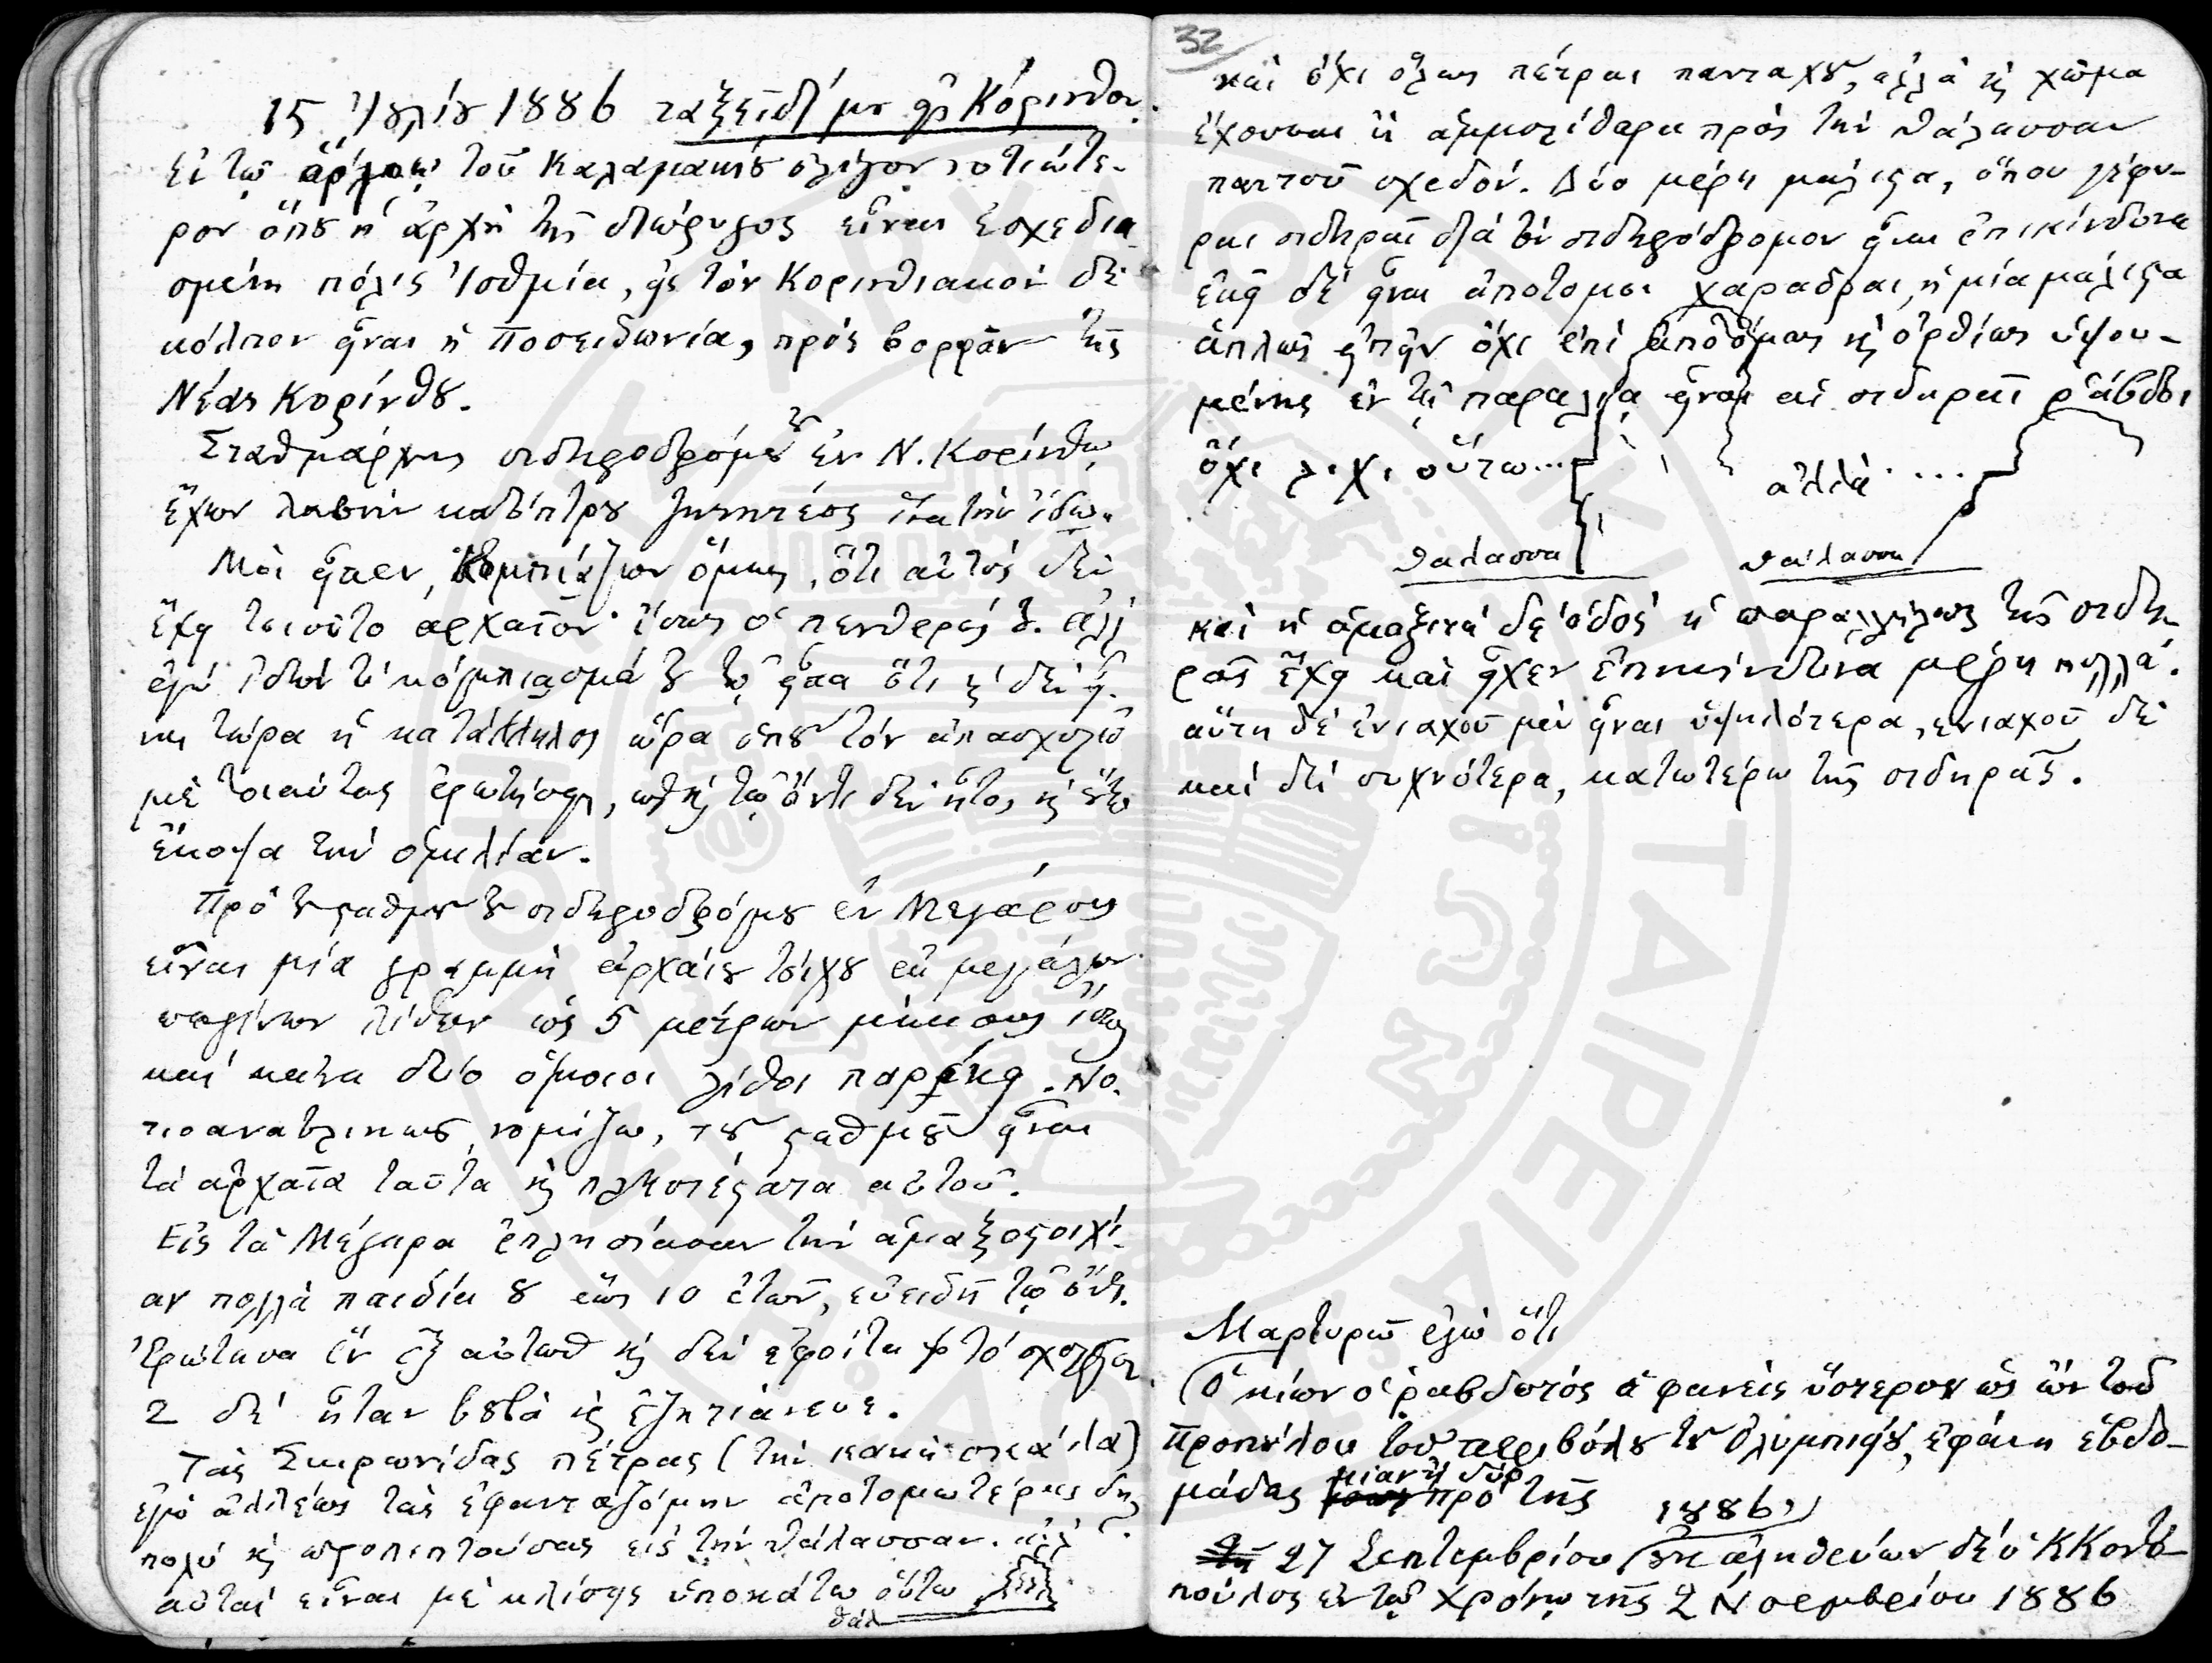 15 Ἰουλίου 1886 ταξείδι μου εἰς Κόρινθον.
Εἰς τῷ ὅρμῳ τοῦ Καλαμακίου ὀλίγον νοτιώτε-
ρον ὅπου ἡ ἀρχὴ τῆς διώρυγος εἶναι ἐσχεδια
σμένη πόλις Ἰσθμία, εἰς τὸν Κορινθιακὸν δὲ
κόλπον εἶναι ἡ Ποσειδωνία, πρὸς βορρᾶν τῆς
Νέας Κορίνθου.
Σταθμάρχης σιδηροδρόμου ἐν Ν. Κορίνθῳ
ἔχων λαβὴν κατόπτρου ζητητέος ἵνα τὴν ἴδω.
Μοὶ εἶπεν, κομπιάζων ὅμως, ὅτι αὐτὸς δὲν
ἔχει τοιοῦτο ἀρχαῖον ἴσως ὁ πενθερός του. ἀλλ
ἐγὼ ἰδὼν τὸ κόμπιασμά του τῷ εἶπα ὅτι καὶ δὲν εἶ-
ναι τώρα ἡ κατάλληλος ὥρα ὅπου τὸν ἀπασχολῶ
μὲ τοιαύτας ἐρωτήσεις, καὶ τῷ ὄντι δὲν ἦτο, καὶ οὕτω
ἔκοψα τὴν ὁμιλίαν.
Πρὸ τοῦ σταθμοῦ τοῦ σιδηροδρόμου ἐν Μεγάροις
εἶναι μία γραμμὴ ἀρχαίου τοίχου ἐκ μεγάλων
πωρίνων λίθων ὡς 5 μέτρων μήκους ἴσως
καὶ κατα δύο ὅμοιοι λίθοι παρέκει. Νο-
τιοανατολικῶς, νομίζω, τοῦ σταθμοῦ εἶναι
τὰ ἀρχαῖα ταῦτα καὶ πλησιέστατα αὐτοῦ.
Εἰς τὰ Μέγαρα ἐπλησίασαν τὴν ἁμαξοστοιχί-
αν πολλὰ παιδία 8 ἕως 10 ἐτῶν, εὐειδῆ τῷ ὄντι.
Ἐρώτησα ἓν ἐξ αὐτῶν καὶ δὲν ἐφοίτα εἰς τὸ σχολεῖον
2 δὲ ἦταν βουβὰ καὶ ἐζητιάνευε.
Τὰς Σκιρωνίδας πέτρας (τὴν κακὴ σκάλα)
ἐγὼ ἀλλέως τὰς ἐφανταζόμην ἀποτομωτέρας δηλ.
πολὺ καὶ προπιπτούσας εἰς τὴν θάλασσαν. ἀλλ
αὐταὶ εἶναι μὲ κλίσεις ὑποκάτω οὕτω
θάλ
32
καὶ ὄχι ὅλως πέτραι πανταχοῦ, ἀλλὰ καὶ χῶμα
ἔχουσαι ἢ ἀμμολίθαρα πρὸς τὴν θάλασσαν
παντοῦ σχεδόν. Δύο μέρη μάλιστα, ὅπου γέφυ-
ραι σιδηραῖ διὰ τὸν σιδηρόδρομον εἶναι ἐπικίνδυνα
ἐκεῖ δὲ εἶναι ἀπότομοι χαράδραι, ἡ μία μάλιστα
ἁπλῶς εἰπεῖν ὄχι ἐπὶ ἀποτόμως καὶ ὀρθίως ὑψου-
μένης ἐν τῇ παραλίᾳ εἶναι αἱ σιδηραῖ ῥάβδοι
ὄχι λ.χ. οὕτω... ἀλλὰ....
θάλασσα θάλασσα
καὶ ἡ ἁμαξιτὴ δὲ ὁδὸς ἡ παραλλήλως τῆς σιδη-
ρᾶς ἔχει καὶ εἶχεν ἐπικίνδυνα μέρη πολλά.
αὕτη δὲ ἐνιαχοῦ μὲν εἶναι ὑψηλότερα, ἐνιαχοῦ δὲ
καὶ δὴ συχνότερα, κατωτέρω τῆς σιδηρᾶς.
Μαρτυρῶ ἐγὼ ὅτι
(ὁ κίων ὁ ῥαβδωτὸς ὁ φανεὶς ὕστερον ὡς ὢν τοῦ
Προπύλου τοῦ περιβόλου τοῦ Ὀλυμπιείου, ἐφάνη ἑβδο-
μάδας μίαν ἢ δύο πρὸ τῆς 1886
27 Σεπτεμβρίου ἀληθεύων δὲ ὁ Κ Κοντό
πουλος ἐν τῷ χρόνῳ τῆς 2 Νοεμβρίου 1886